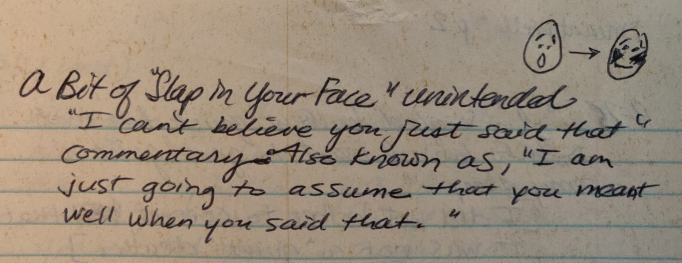 A Bit of "Slap in Your Face" unintended
"I can't believe you just said that"
commentary. Also known as, "I am
just going to assume that you meant
well when you said that."